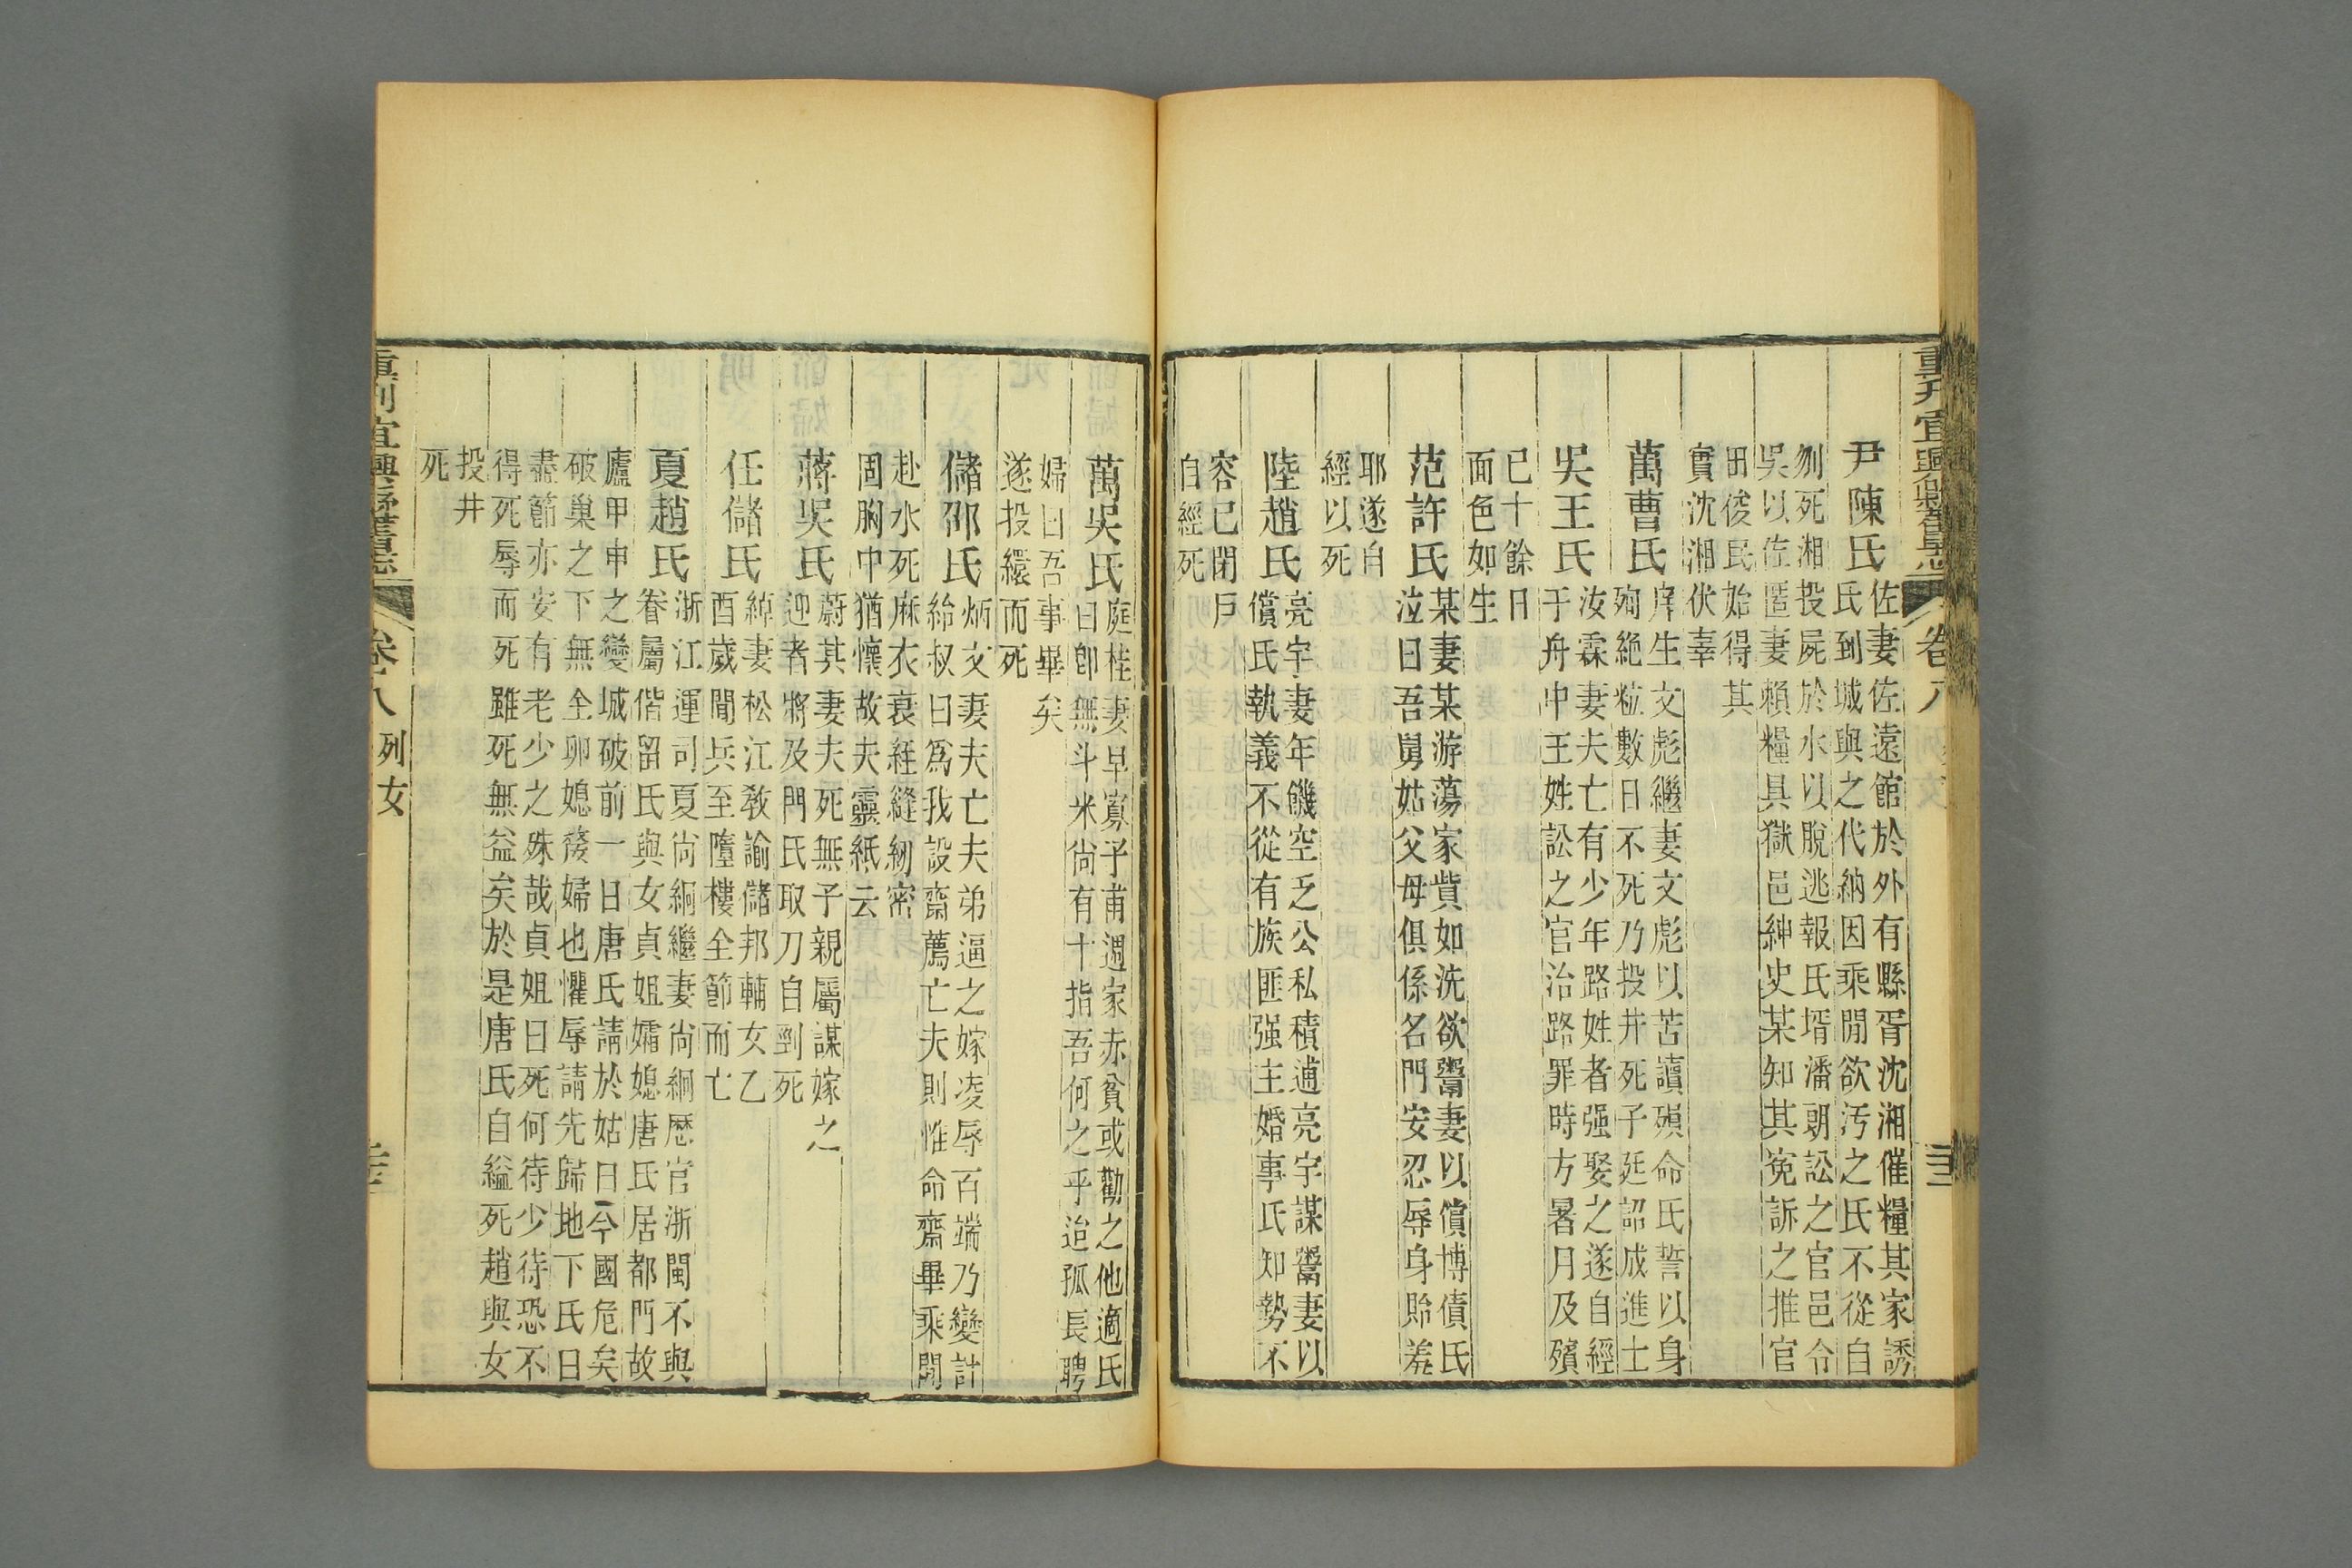 重刋宜興縣舊志 卷八
尹陳氏 佐妻佐遠館於外有縣胥沈湘催糧其家誘
氏到城與之代納因乘閒欲汚之氏不從自
刎死湘投屍於水以脫逃報氏壻潘朝訟之官邑令
吳以佐匿妻賴糧具獄邑紳史某知其寃訴之推官
田俊民始得其
實沈湘伏辜
萬曹氏 庠生文彪繼妻文彪以苦讀殞命氏誓以身
殉絶粒數日不死乃投井死子廷詔成進士
吳王氏 汝霖妻夫亡有少年路姓者强娶之遂自經
于舟中王姓訟之官治路罪時方暑月及殯
已十餘日
面色如生
范許氏 某妻某游蕩家貲如洗欲鬻妻以償博債氏
泣曰吾舅姑父母俱係名門安忍辱身貽羞
耶遂自
經以死
陸趙氏 亮宇妻年饑空乏公私積逋亮宇謀鬻妻以
償氏執義不從有族匪强主婚事氏知勢不
容已閉戶
自經死
萬吳氏 庭桂妻早寡子甫週家赤貧或勸之他適氏
曰卽無斗米尙有十指吾何之乎迨孤長聘
婦曰吾事畢矣
遂投繯而死
儲邵氏 炳文妻夫亡夫弟逼之嫁凌辱百端乃變計
紿叔曰爲我設齋薦亡夫則惟命齋畢乘閒
赴水死麻衣衰絰縫紉密
固胸中猶懷故夫靈紙云
蔣吳氏 蔚其妻夫死無子親屬謀嫁之
迎者將及門氏取刀自剄死
任儲氏 綽妻松江敎諭儲邦輔女乙
酉歲閒兵至墮樓全節而亡
夏趙氏 浙江運司夏尙絅繼妻尙絅歷官浙閩不與
眷屬偕留氏與女貞姐孀媳唐氏居都門故
廬甲申之變城破前一日唐氏請於姑曰今國危矣
破巢之下無全卵媳嫠婦也懼辱請先歸地下氏曰
盡節亦安有老少之殊哉貞姐曰死何待少待恐不
得死辱而死雖死無益矣於是唐氏自縊死趙與女
投井
死
重刋宜興縣舊志 卷八 列女